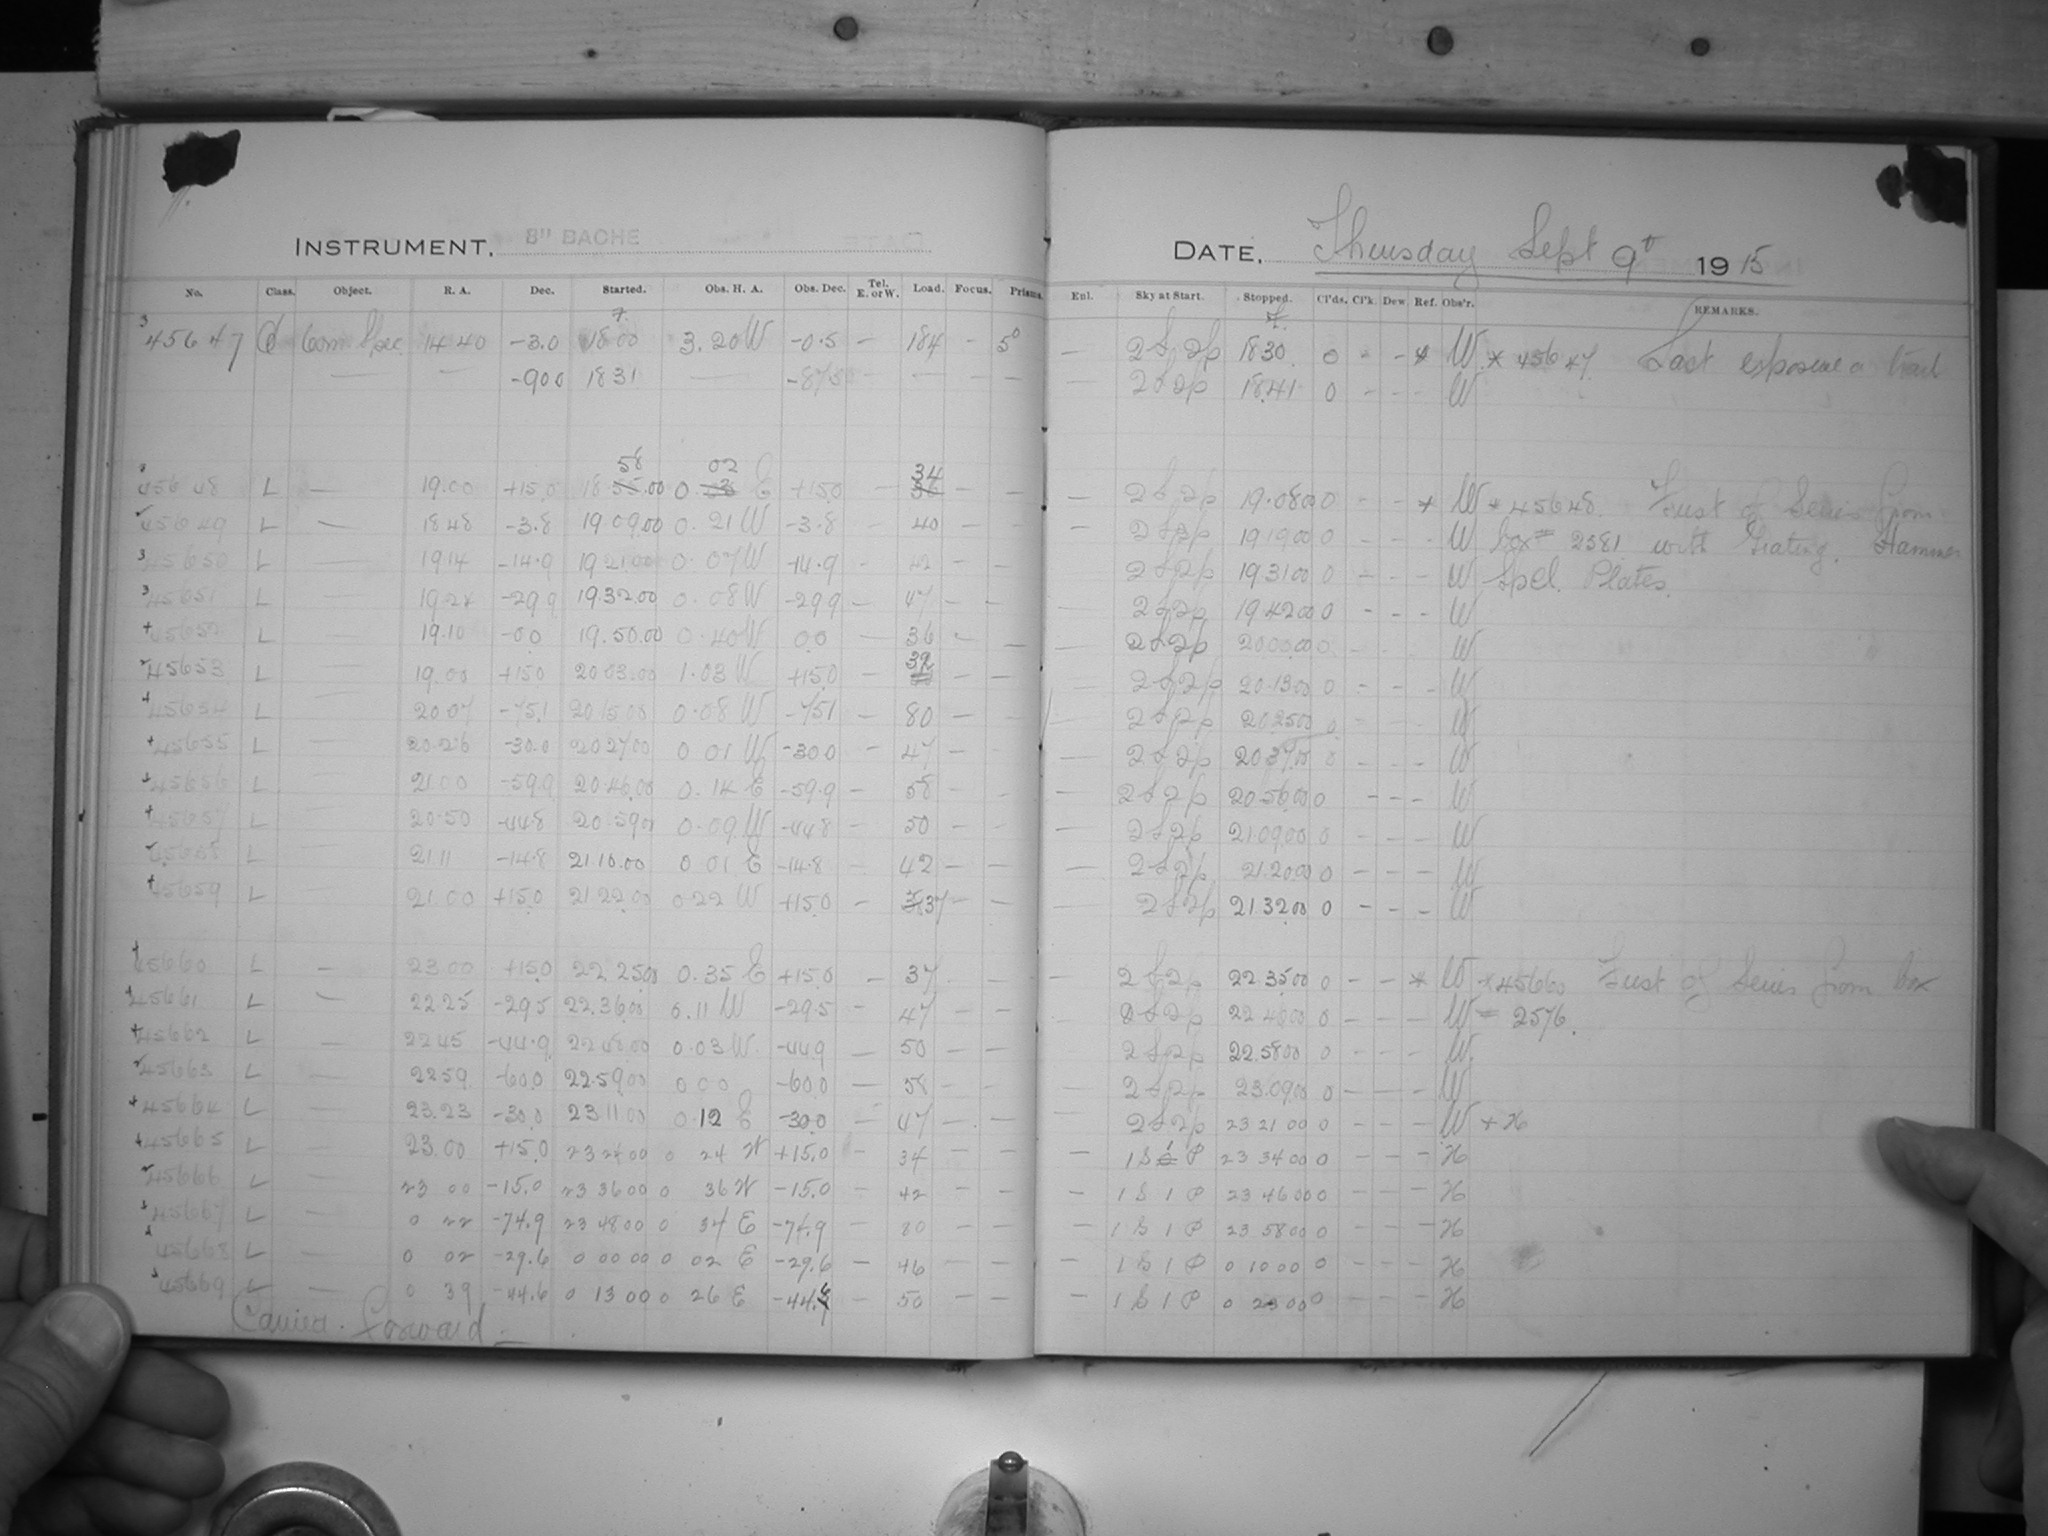 INSTRUMENT, 8" BACHE
DATE, Thursday Sept 9th 1915
No. Class. Object. R. A. Dec. Started. Obs. H. A. Obs. Dec. Tel. E. or W. Load. Focus. Prisms. Enl. Sky at Start. Stopped. Cl'ds. Cl'k. Dew Ref. Obs'r. REMARKS.
45647 Com Spec. 14 40 -3.0 18 00 3.20 W -0.5 — 184 - 5° — 2S,2p 18 30 0 - - * W * 45647 Last exposure a trail
— — -90.0 18 31 — -87.5 — — — — — 2S2p 18.41 0 - - - W
45648 L — 19.00 +15.0 18.58.00 0.02 E +15.0 — 34 — — — 2S,2p 19.08.00 0 - - * W * 45648. First of Series from
45649 L — 18 48 -3.8 19 09 00 0.21 W -3.8 — 40 — — — 2S2p 19 19 00 0 - - - W box = 2581 with Grating. Hammer
45650 L — 19.14 -14.9 19 21 00 0.07 W -14.9 — 42 — — — 2S2p 19 31 00 0 - - - W Spcl. Plates.
45651 L — 19.24 -29.9 19.32.00 0.08 W -29.9 — 47 — — — 2S2p 19 42 00 0 - - - W
45652 L — 19.10 -0.0 19.50.00 0.40 W 0.0 — 36 — — — 2S2p 20 00 00 0 - - - W
45653 L — 19.00 +15.0 20 03.00 1.03 W +15.0 — 32 — — — 2S2p 20 13 00 0 - - - W
45654 L — 20.07 -75.1 20 15 00 0.08 W -75.1 — 80 — — — 2S2p 20 25 00 0 - - - W
45655 L — 20.26 -30.0 20 27 00 0 01 W -30.0 — 47 — — — 2S2p 20 37 00 0 - - - W
45656 L — 21.00 -59.9 20.46.00 0.14 E -59.9 — 58 — — — 2S2p 20 56 00 0 - - - W
45657 L — 20.50 -44.8 20.59 00 0.09 W -44.8 — 50 — — — 2S2p 21.09.00 0 - - - W
45658 L — 21.11 -14.8 21.10.00 0 01 E -14.8 — 42 — — — 2S2p 21.20.00 0 - - - W
45659 L — 21.00 +15.0 21.22.00 0 22 W +15.0 — 37 — — — 2S2p 21 32 00 0 - - - W
45660 L — 23.00 +15.0 22 25 00 0.35 E +15.0 — 37 — — — 2S2p 22 35 00 0 - - * W * 45660 First of Series from box
45661 L — 22 25 -29.5 22.36.00 0.11 W -29.5 — 47 — — — 2S2p 22 46 00 0 - - - W = 2576.
45662 L — 22 45 -44.9 22 48 00 0.03 W. -44.9 — 50 — — — 2S2p 22.58 00 0 - - - W
45663 L — 22 59 -60.0 22.59 00 0 00 -60.0 — 58 — — — 2S2p 23.09 00 0 - - - W
45664 L — 23.23 -30.0 23 11 00 0.12 E -30.0 — 47 — — — 2S2p 23 21 00 0 - - - W + H
45665 L — 23.00 +15.0 23 24 00 0 24 W +15.0 — 34 — — — 1 S 1 P 23 34 00 0 - - - H
45666 L — 23 00 -15.0 23 36 00 0 36 W -15.0 — 42 — — — 1 S 1 P 23 46 00 0 - - - H
45667 L — 0 22 -74.9 23 48 00 0 34 E -74.9 — 80 — — — 1 S 1 P 23 58 00 0 - - - H
45668 L — 0 02 -29.6 0 00 00 0 02 E -29.6 — 46 — — — 1 S 1 P 0 10 00 0 - - - H
45669 L — 0 39 -44.6 0 13 00 0 26 E -44.6 — 50 — — — 1 S 1 P 0 23 00 0 - - - H
Carried. Forward